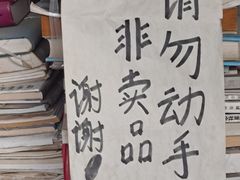 请勿动手
非卖品
谢谢!